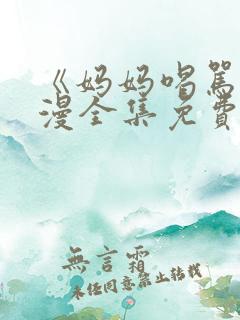 《妈妈唱駡
漫全集免費
無言霜
未经同意禁止转载